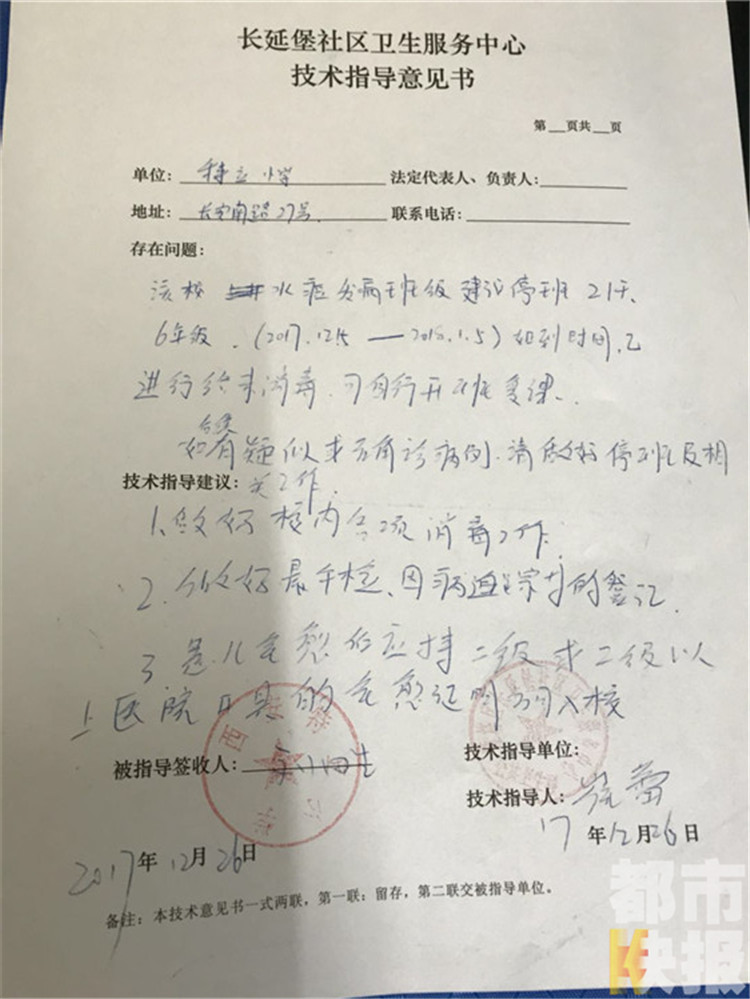 长延堡社区卫生服务中心
技术指导意见书
第__页共__页
单位：特立小学 法定代表人、负责人：
地址：长安南路27号 联系电话：
存在问题：
该校水痘发病班级建议停班21天
6年级.(2017.12.15—2018.1.5)如到时间,已
进行终末消毒.可自行开班复课.
如有疑似或确诊病例.请做好停班及相
技术指导建议：关工作.
1.做好校内各项消毒工作.
2.做好晨午检、因病追踪的登记.
3.患儿痊愈后应持二级或二级以
上医院开具的痊愈证明方可入校
被指导签收人：
技术指导单位：
技术指导人：
2017年12月26日
17年12月26日
备注：本技术意见书一式两联，第一联：留存，第二联交被指导单位。
都市
快报